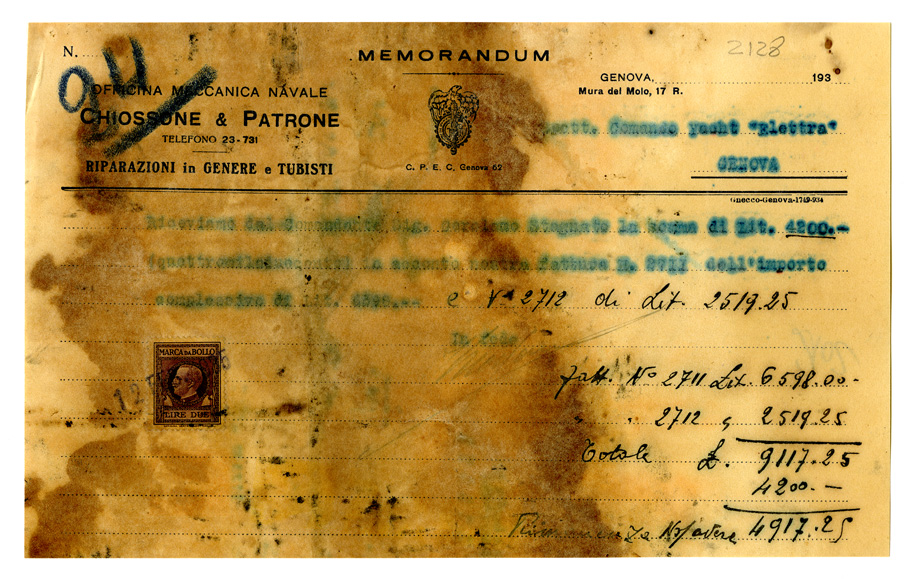 N.
94
MEMORANDUM
2128
OFFICINA MECCANICA NAVALE
CHIOSSONE & PATRONE
TELEFONO 23-731
RIPARAZIONI in GENERE e TUBISTI
C. P. E. C. Genova 62
GENOVA, 193
Mura del Molo, 17 R.
Comando yacht "Elettra"
GENOVA
Gnecco-Genova-1749-934
Riceviamo dal Comandante Stagnate la somma di Lit. 4200.-
in acconto fattura N. 2711 dell'importo
complessivo di Lit. e Nº 2712 di Lit. 2519.25
In fede
MARCA DA BOLLO
LIRE DUE
fatt. Nº 2711 Lit. 6598.00-
" " 2712 " 2519.25
Totale £. 9117.25
4200.-
Ns/avere 4917.25